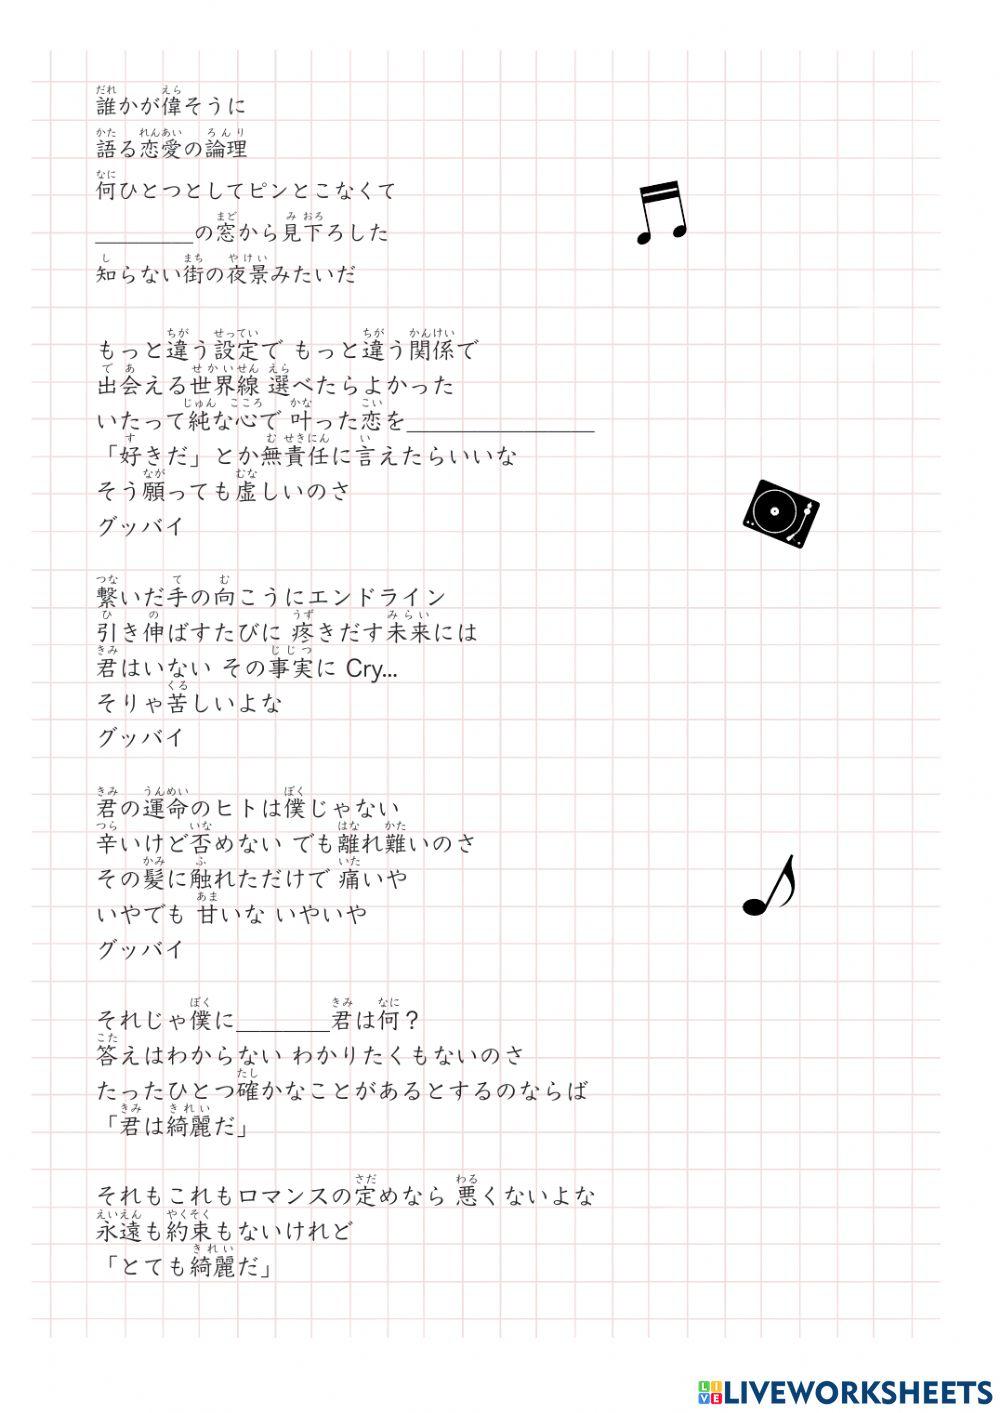 誰かが偉そうに
語る恋愛の論理
何ひとつとしてピンとこなくて
________の窓から見下ろした
知らない街の夜景みたいだ
もっと違う設定で もっと違う関係で
出会える世界線 選べたらよかった
いたって純な心で 叶った恋を________________
「好きだ」とか無責任に言えたらいいな
そう願っても虚しいのさ
グッバイ
繋いだ手の向こうにエンドライン
引き伸ばすたびに 疼きだす未来には
君はいない その事実に Cry...
そりゃ苦しいよな
グッバイ
君の運命のヒトは僕じゃない
辛いけど否めない でも離れ難いのさ
その髪に触れただけで 痛いや
いやでも 甘いな いやいや
グッバイ
それじゃ僕に________君は何？
答えはわからない わかりたくもないのさ
たったひとつ確かなことがあるとするのならば
「君は綺麗だ」
それもこれもロマンスの定めなら 悪くないよな
永遠も約束もないけれど
「とても綺麗だ」
LIVEWORKSHEETS